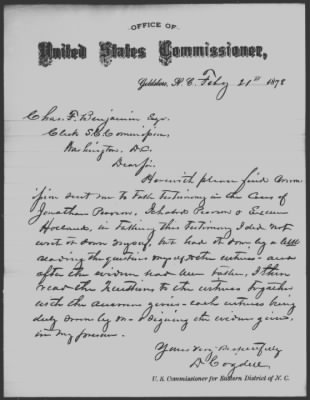 OFFICE OF
United States Commissioner,
Goldsboro, N. C. Feby 21st 1878
Chas. F. Benjamin Esqr.
Clerk S. C. Commission,
Washington, D.C.
Dear Sir.
Herewith please find Commis
sion sent me to take testimony in the Cases of
Jonathan
Holland, in taking this testimony I did not
write it down myself, but had it done by a
reading the questions myself to the witness - and
after the evidence had been taken, I then
read the Questions to the witness together
with the answers given - each witness being
duly sworn by me & signing the evidence given,
in my presence.
Yours very Respectfully
D. Cogdell,
U. S. Commissioner for Eastern District of N. C.